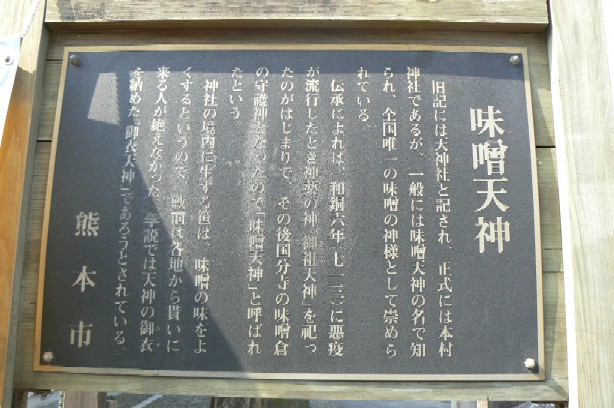 味噌天神
旧記には天神社と記され、正式には本村
神社であるが、一般には味噌天神の名で知
られ、全国唯一の味噌の神様として崇めら
れている。
伝承によれば、和銅六年(七一三)に悪疫
が流行したとき神薬の神「御祖天神」を祀っ
たのがはじまりで、その後国分寺の味噌倉
の守護神となったので「味噌天神」と呼ばれ
たという。
神社の境内に生ずる笹は、味噌の味をよ
くするというので、戦前は各地から貰いに
来る人が絶えなかった。一説では天神の御衣
を納めた「御衣天神」であろうとされている。
熊本市